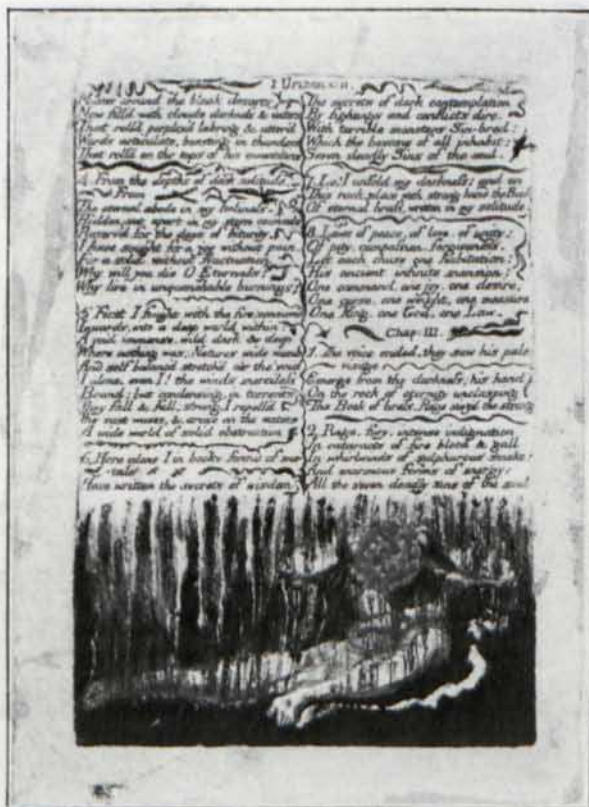 I Urizen C II
Muster around the bleak desarts
Now fill'd with clouds, darkness & waters
That roll'd perplex'd labring & utter'd
Words articulate, bursting in thunders
That roll'd on the tops of his mountains
4. From the depths of dark solitude.
From
The eternal abode in my holiness,
Hidden set apart in my stern counsels
Reserv'd for the days of futurity,
I have sought for a joy without pain,
For a solid without fluctuation
Why will you die O Eternals?
Why live in unquenchable burnings?
5 First I fought with the fire; consum'd
Inwards, into a deep world within:
A void immense, wild dark & deep,
Where nothing was: Natures wide womb
And self balanc'd stretch'd o'er the void
I alone, even I! the winds merciless
Bound; but condensing, in torrents
They fall & fall; strong, I repell'd
The vast waves, & arose on the waters
A wide world of solid obstruction
6. Here alone I in books form'd of me-
-tals
Have written the secrets of wisdom
The secrets of dark contemplation
By fightings and conflicts dire,
With terrible monsters Sin-bred:
Which the bosoms of all inhabit;
Seven deadly Sins of the soul.
7. Lo! I unfold my darkness: and on
This rock, place with strong hand the Book
Of eternal brass, written in my solitude.
8. Laws of peace, of love, of unity:
Of pity, compassion, forgiveness.
Let each chuse one habitation:
His ancient infinite mansion:
One command, one joy, one desire,
One curse, one weight, one measure
One King, one God, one Law.
Chap: III.
1. The voice ended, they saw his pale
visage
Emerge from the darkness; his hand
On the rock of eternity unclasping
The Book of brass. Rage siez'd the strong
2. Rage, fury, intense indignation
In cataracts of fire blood & gall
In whirlwinds of sulphurous smoke:
And enormous forms of energy;
All the seven deadly sins of the soul